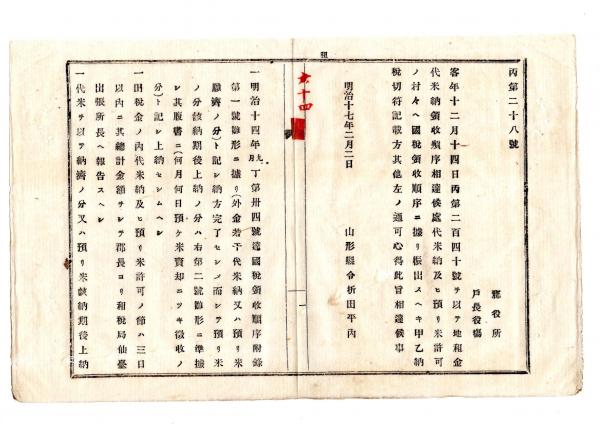 租
丙第二十八號
郡役所
戶長役場
客年十二月十四日丙第二百四十號ヲ以テ地租金
代米納領收順序相達候處代米納及ヒ預リ米許可
ノ村々ヘ國稅領收順序ニ據リ振出スヘキ甲乙納
稅切符記載方其他左ノ通可心得此旨相達候事
明治十七年二月二日
山形縣令折田平內
一明治十四年九月丁第卅四號達國稅領收順序附錄
第一號雛形ニ據リ(外金若干代米納又ハ預リ米
願濟ノ分)ト記シ納方完了セシメ而シテ預リ米
ノ分該納期後上納ノ分ハ右第二號雛形ニ準據
シ其版書ニ(何月何日預ケ米賣却ニツキ徵收ノ
分)ト記シ上納セシムヘシ
一田稅金ノ內代米納及ヒ預リ米許可ノ節ハ三日
以內ニ其總計金額ヲシテ郡長ヨリ租稅局仙臺
出張所長ヘ報告スヘシ
一代米ヲ以テ納濟ノ分又ハ預リ米該納期後上納